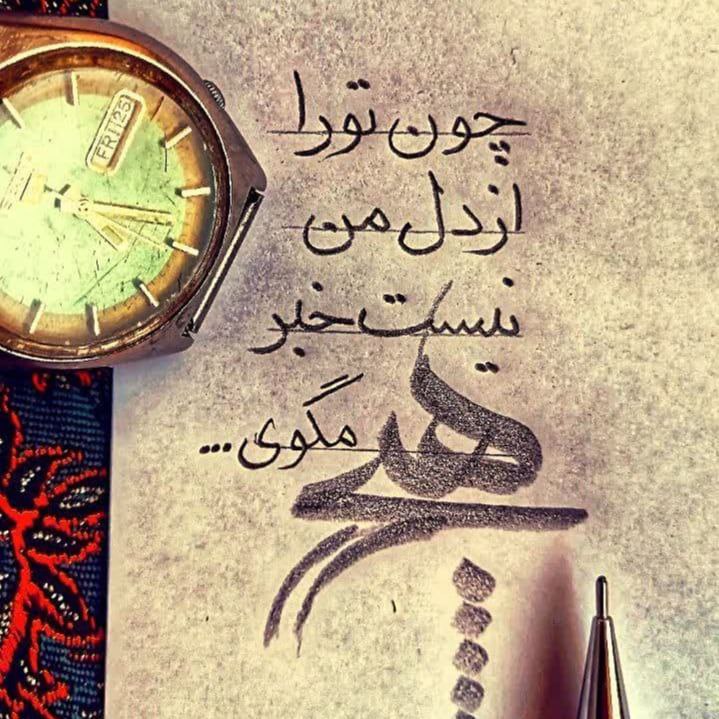 چون تو را
از دل من
نیست خبر
هیچ مگوی...
FRI 25